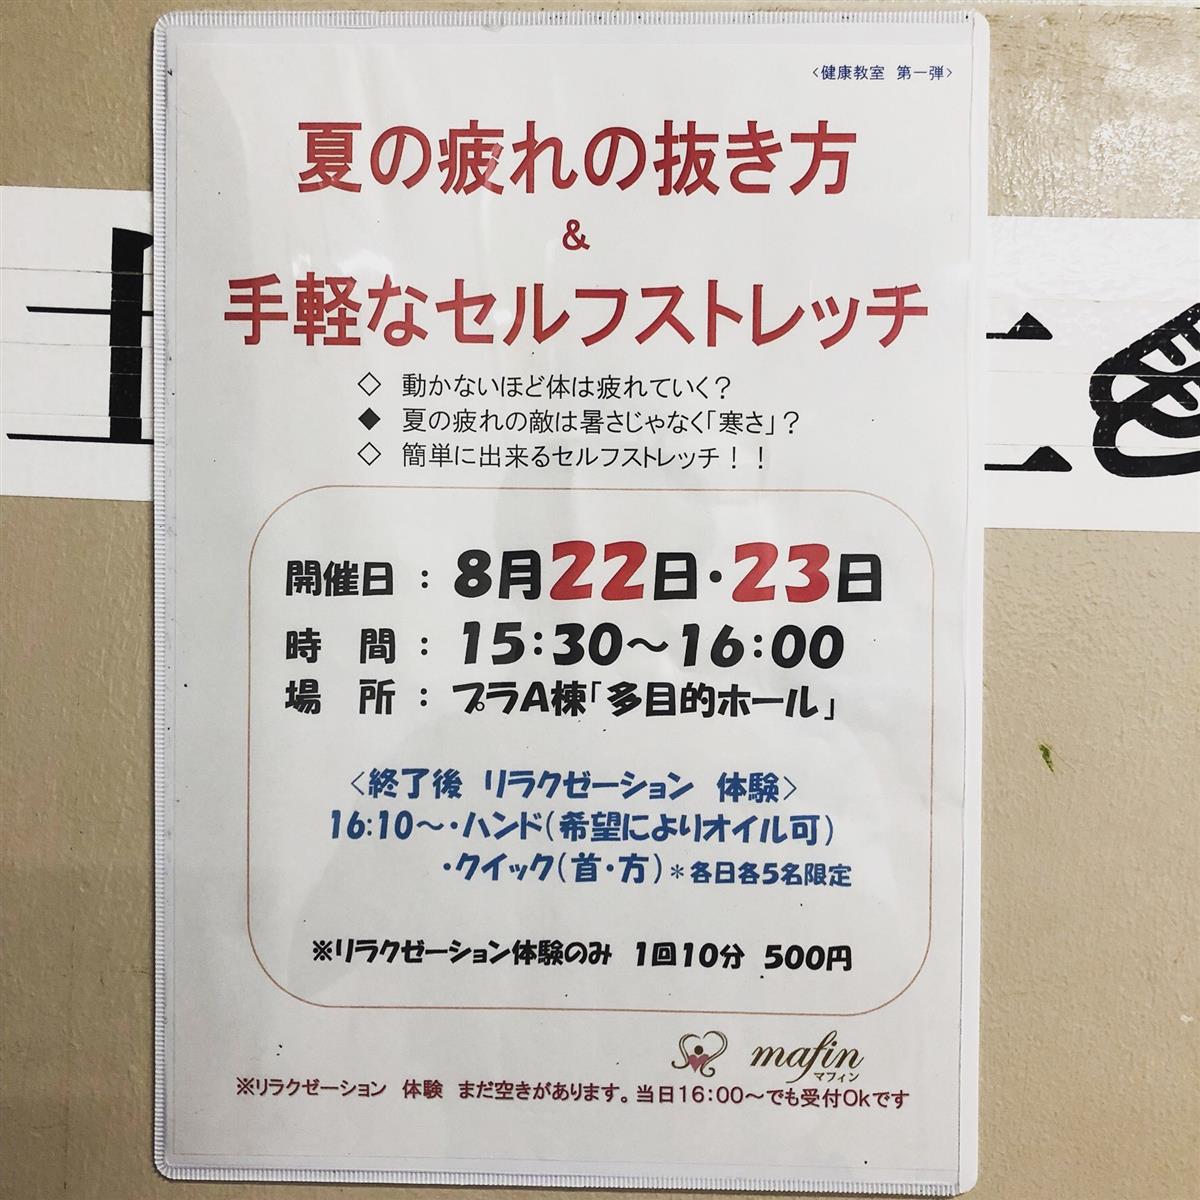 ＜健康教室　第一弾＞
夏の疲れの抜き方
＆
手軽なセルフストレッチ
◇　動かないほど体は疲れていく？
◆　夏の疲れの敵は暑さじゃなく「寒さ」？
◇　簡単に出来るセルフストレッチ！！
開催日　：　8月22日・23日
時　間　：　15：30～16：00
場　所　：　プラA棟「多目的ホール」
＜終了後　リラクゼーション　体験＞
16：10～・ハンド（希望によりオイル可）
・クイック（首・方）＊各日各5名限定
※リラクゼーション体験のみ　1回10分　500円
mafin
マフィン
※リラクゼーション　体験　まだ空きがあります。当日16：00～でも受付Okです